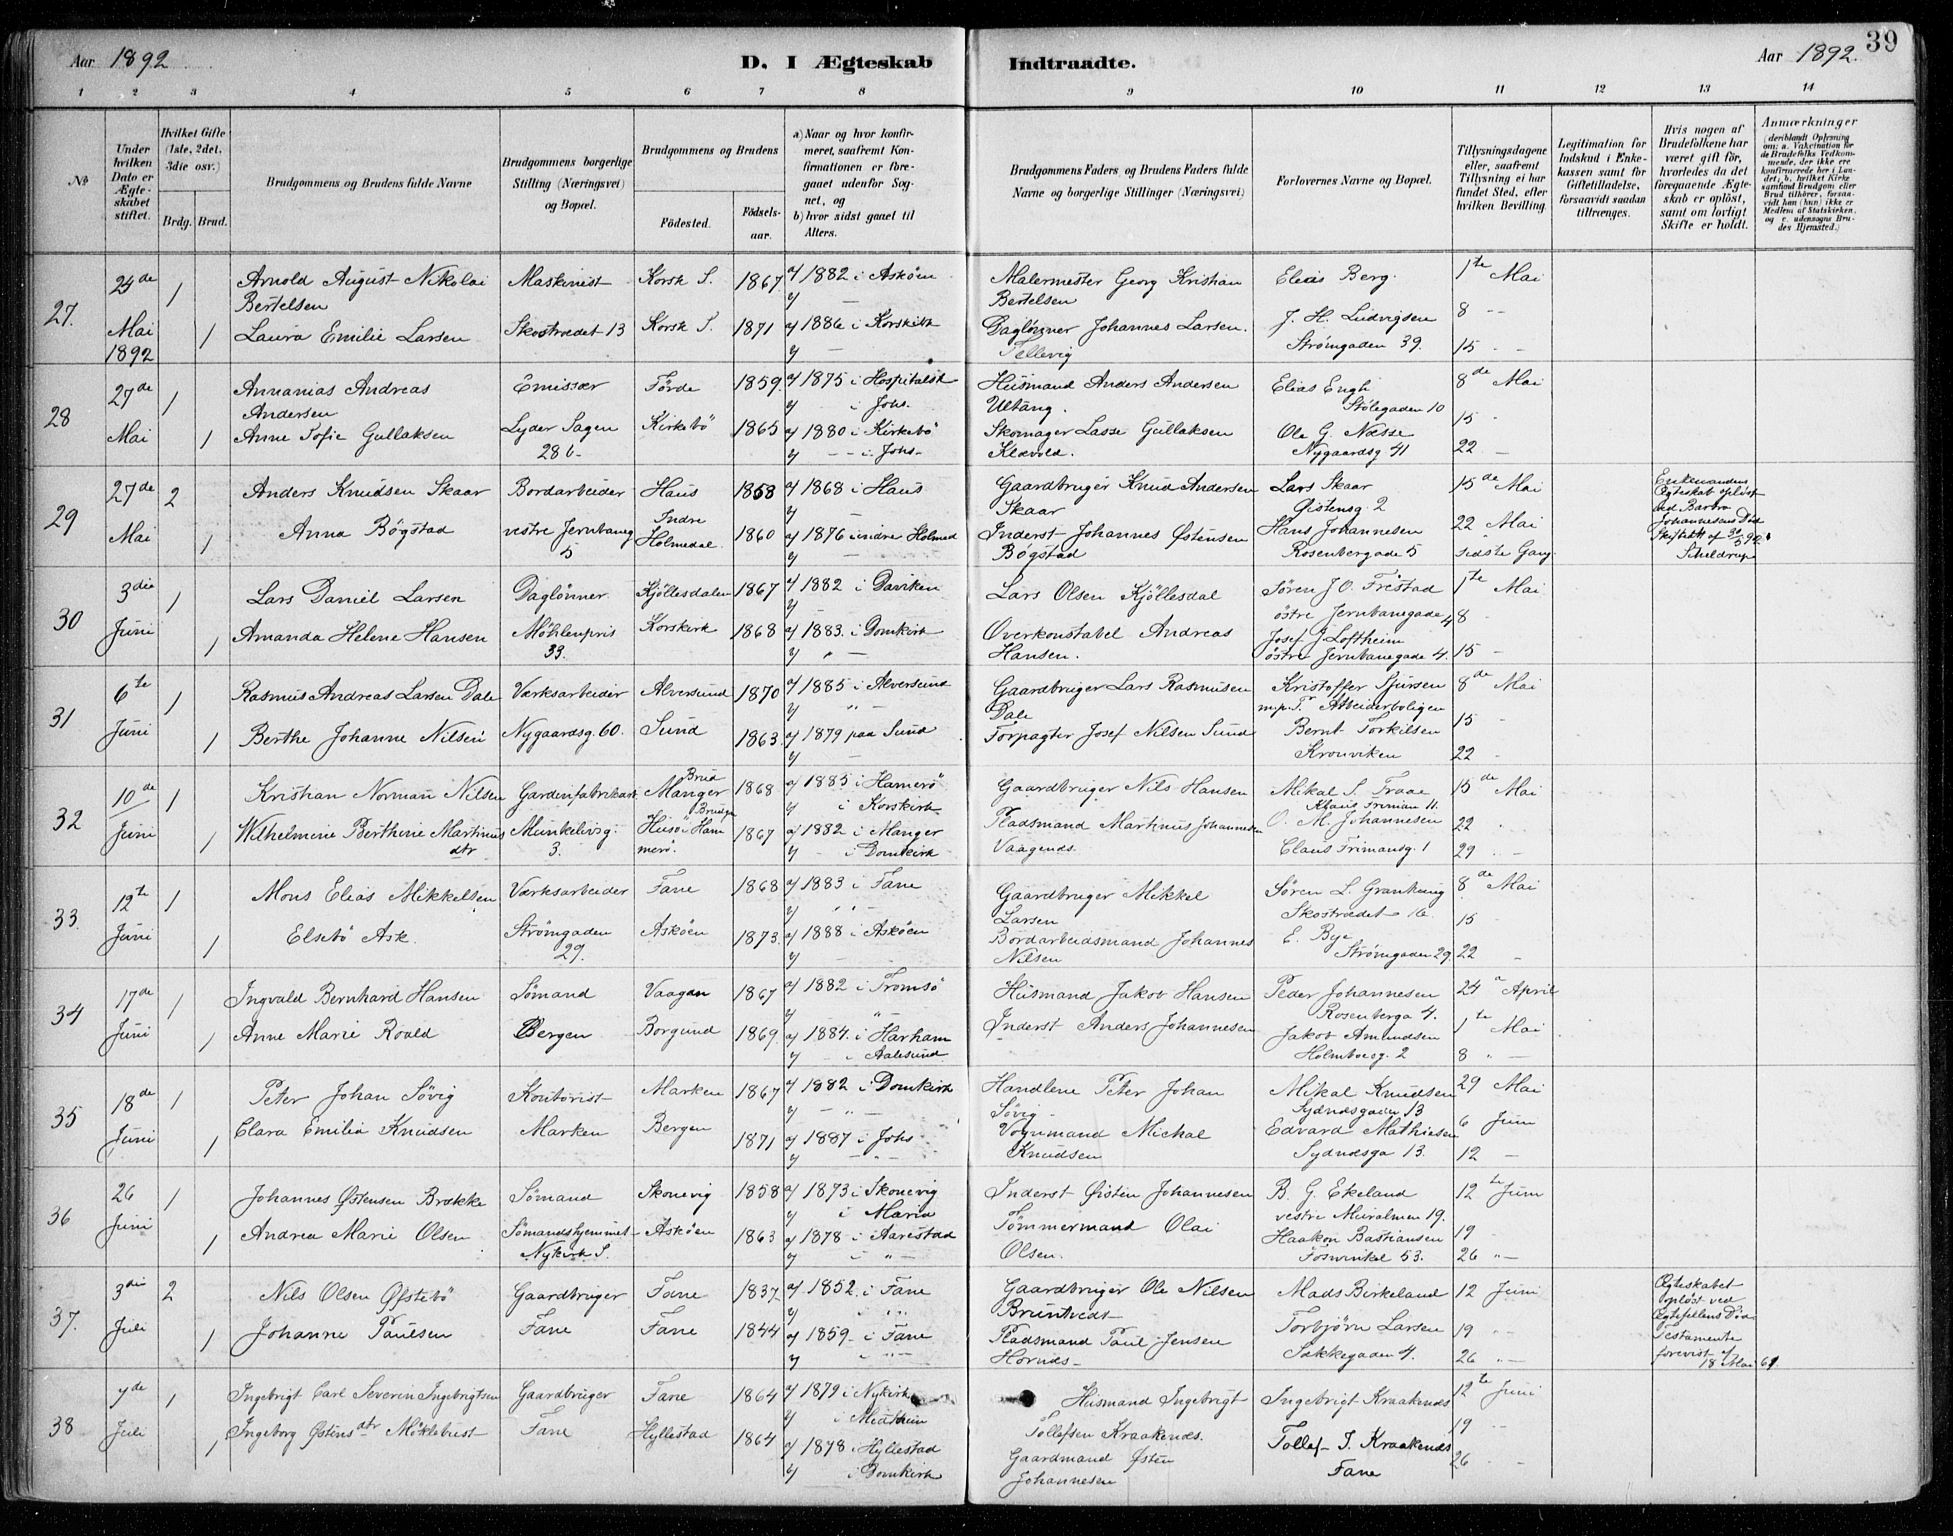 Aar 1892
D. I Ægteskab
Indtraadte.
Aar 1892.
39
1 2 3 4 5 6 7 8 9 10 11 12 13 14
No
Under hvilken Dato er Ægteskabet stiftet.
Hvilket Gifte (1ste, 2det, 3die osv.)
Brdg. Brud.
Brudgommens og Brudens fulde Navne
Brudgommens borgerlige Stilling (Næringsvei) og Bopæl.
Brudgommens og Brudens
Födested.
Födselsaar.
a) Naar og hvor konfirmeret, saafremt Konfirmationen er foregaaet udenfor Sognet, og
b) hvor sidst gaaet til Alters.
Brudgommens Faders og Brudens Faders fulde Navne og borgerlige Stillinger (Næringsvei)
Forlovernes Navne og Bopæl.
Tillysningsdagene eller, saafremt Tillysning ei har fundet Sted, efter hvilken Bevilling.
Legitimation for Indskud i Enkekassen samt for Giftetilladelse, forsaavidt saadan tiltrænges.
Hvis nogen af Brudefolkene har været gift för, hvorledes da det foregaaende Ægteskab er oplöst, samt om lovligt Skifte er holdt.
Anmærkninger
(deriblandt Oplysning om: a. Vakcination for de Brudefolks Vedkommende, der ikke ere konfirmerede her i Landet; b. hvilket Kirkesamfund Brudgom eller Brud tilhörer, forsaavidt han (hun) ikke er Medlem af Statskirken, og c. udensogns Brudes Hjemsted.)
27. 24de Mai 1892
1 Arnold August Nikolai Bertelsen Maskinist Korsk S. 1867 a/ 1882 i Askøen
Malermester Georg Kristian Bertelsen Elias Berg. 1te Mai
1 Laura Emilie Larsen Skostrædet 13 Korsk S. 1871 a/ 1886 i Korskirk
Daglönner Johannes Larsen. Tellevig J. H. Ludvigsen Strömgaden 39. 8 15
28 27de Mai
1 Annanias Andreas Andersen Emissær Förde 1859. a/ 1875 i Hospitalsk i Johs.
Husmand Anders Andersen Ultang. Elias Engh Stölegaden 10 8de Mai
1 Anne Sofie Gullaksen Lyder Sagen 28 b Kirkebö 1865 a/ 1880 i Kirkebö i Johs
Skomager Lasse Gullaksen Klævold. Ole G. Næsse Nygaardsg 41 15 22
29 27de Mai
2 Anders Knudsen Skaar Bordarbeider Haus 1858 a/ 1868 i Haus
Gaardbruger Knud Andersen Skaar Lars Skaar Gistensg 2 15de Mai
1 Anna Bögstad vestre Jernbaneg 5 Indre Holmedal 1860 a/ 1876 i indre Holmed
Inderst Johannes Østensen Bögstad Hans Johannesen Rosenbergade 5 22 Mai sidste Gang
Enkemandens Ægteskab oplöst ved Barbra Johannesens Död Skifteatt af 3%5 92. Scheldrup
30 3die Juni
1 Lars Daniel Larsen Daglönner Kjöllesdalen 1867 a/ 1882 i Daviken
Lars Olsen Kjöllesdal Søren J O. Frestad østre Jernbanegade 4 1te Mai
1 Amanda Helene Hansen Möhlenpris 33. Korskirk 1868 a/ 1883. i Domkirk
Overkonstabel Andreas Hansen. Josef J. Loftheim østre Jernbanegade 4. 8 15
31 6te Juni
1 Rasmus Andreas Larsen Dale Værksarbeider Alversund 1870 a/ 1885 i Alversund
Gaardbruger Lars Rasmusen Dale Kristoffer Sjursen m.p.T. Arbeiderboligen 8de Mai
1 Berthe Johanne Nilsen Nygaardsg. 60. Sund 1863. a/ 1879 paa Sund
Forpagter Josef Nilsen Sund Bernt Torkilsen Kronviken 15 22
32 10de Juni
1 Kristian Norman Nilsen Gardinfabrikant Brud Manger 1868 a/ 1885 i Hamerö i Korskirk
Gaardbruger Nils Hansen Mikal S. Traae Klaus Friman 11. 15de Mai
1 Wilhelmine Berthine Martinusdtr Munkelivsg. 3. Brudg. Husö i Hammerö. 1867 a/ 1882 i Manger i Domkirk
Pladsmand Martinus Johannesen Vaagends. O. M. Johannesen Claus Frimansg. 1 22 29
33. 12te Juni
1 Mons Elias Mikkelsen Værksarbeider Fane 1868 a/ 1883 i Fane
Gaardbruger Mikkel Larsen Søren L. Skostrædet 16 8de Mai
1 Elsebö Ask. Strömgaden 29. Askøen 1873. a/ 1888 i Askøen
Bordarbeidsmand Johannes Nilsen E. Bye Strömgaden 29. 15 22
34 17de Juni
1 Ingvald Bernhard Hansen Sömand Vaagan 1867 a/ 1882 i Tromsö
Husmand Jakob Hansen Peder Johannesen Rosenberga 4. 24 April
1 Anne Marie Roald Bergen Borgund 1869 a/ 1884. i Harham i Aalesund
Inderst Anders Johannesen Jakob Amundsen Holmboeg. 2 1te Mai 8
35 18de Juni
1 Peter Johan Sövig Kontorist Marken 1867 a/ 1882 i Domkirk
Handlene Peter Johan Sövig Mikal Knudsen Sydnæsgaden 13 29 Mai
1 Clara Emilia Knudsen Marken Bergen 1871 a/ 1887 i Johs
Vognmand Michal Knudsen Edvard Mathiesen Sydnæsga 13. 6 Juni 12
36 26 Juni
1 Johannes Østensen Brække Sömand Skonevig 1858 a/ 1873 i Skonevig i Maria
Inderst Øisten Johannesen B. G. Ekeland vestre Muralmen 19. 12te Juni
1 Andrea Marie Olsen Sömandshjemmet Nykirk S. Askøen 1863 a/ 1878 i Aarestad
Tömmermand Olai Olsen. Haakon Bastiansen Fosvinkel 53. 19 26
37. 3die Juli
2 Nils Olsen Øfstebö Gaardbruger Fane 1837 a/ 1852. i Fane
Gaardbruger Ole Nilsen Bruntveds Mads Birkeland 12 Juni
1 Johanne Paulsen Fane Fane 1844 a/ 1859. i Fane
Pladsmand Paul Jensen Hornæs Torbjörn Larsen Sækkegaden 4. 19 26
Ægteskabet oplöst ved Ægtefællens Död Testamente forevist af 18 Mai 61
38 7de Juli
1 Ingebrigt Carl Severin Ingebrigtsen Gaardbruger Fane 1864 a/ 1879 i Nykirk i Midthun
Husmand Ingebrigt Tollefsen Kraakenæs. Ingebrigt Kraakenæs 12te Juni
1 Ingeborg Østensdtr Möklebust Fane Hyllestad 1864 a/ 1878 i Hyllestad i Domkirk
Gaardmand Østen Johannesen Tollef J. Kraakenæs Fane 19 26